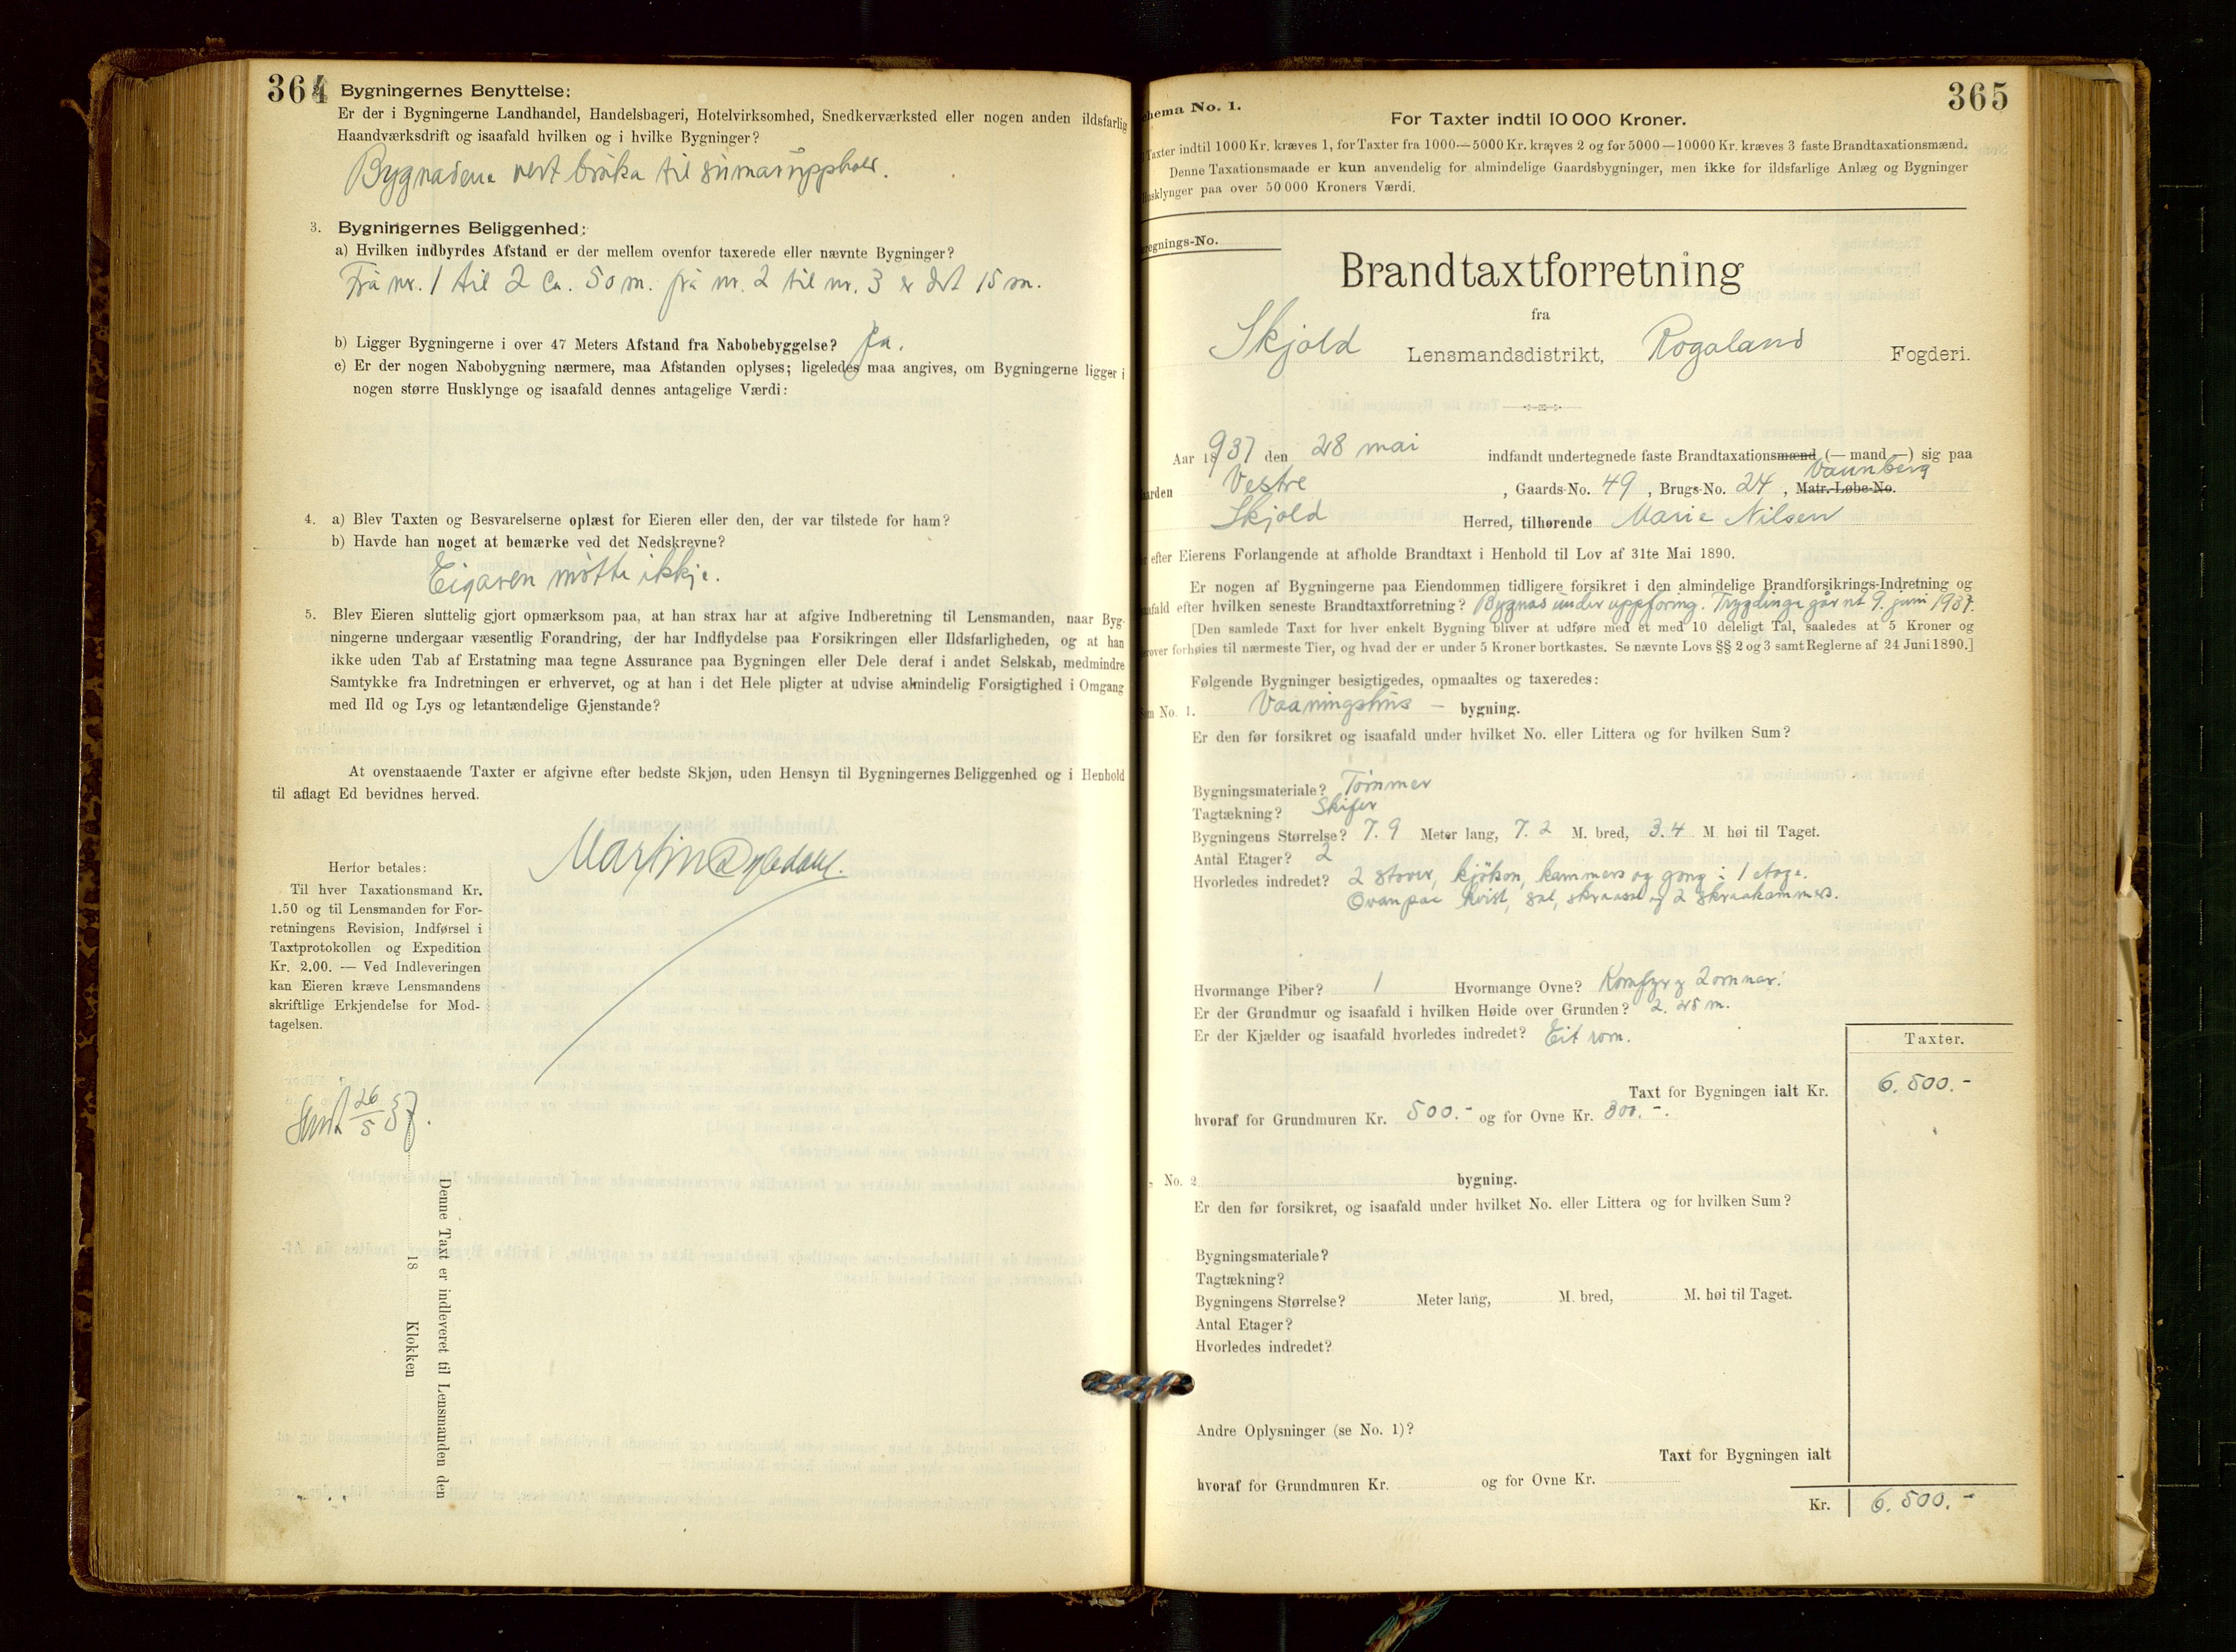 364
Bygningernes Benyttelse:
Er der i Bygningerne Landhandel, Handelsbageri, Hotelvirksomhed, Snedkerværksted eller nogen anden ildsfarlig
Haandværksdrift og isaafald hvilken og i hvilke Bygninger?
Bygnadene vert bruka til sumarupphald.
3. Bygningernes Beliggenhed:
a) Hvilken indbyrdes Afstand er der mellem ovenfor taxerede eller nævnte Bygninger?
Frå nr. 1 til 2 ca. 50 m. frå nr. 2 til nr. 3 er det 15 m.
b) Ligger Bygningerne i over 47 Meters Afstand fra Nabobebyggelse? Ja.
c) Er der nogen Nabobygning nærmere, maa Afstanden oplyses; ligeledes maa angives, om Bygningerne ligger i
nogen større Husklynge og isaafald dennes antagelige Værdi:
4. a) Blev Taxten og Besvarelserne oplæst for Eieren eller den, der var tilstede for ham?
b) Havde han noget at bemærke ved det Nedskrevne?
Eigaren møtte ikkje.
5. Blev Eieren sluttelig gjort opmærksom paa, at han strax har at afgive Indberetning til Lensmanden, naar Byg-
ningerne undergaar væsentlig Forandring, der har Indflydelse paa Forsikringen eller Ildsfarligheden, og at han
ikke uden Tab af Erstatning maa tegne Assurance paa Bygningen eller Dele deraf i andet Selskab, medmindre
Samtykke fra Indretningen er erhvervet, og at han i det Hele pligter at udvise almindelig Forsigtighed i Omgang
med Ild og Lys og letantændelige Gjenstande?
At ovenstaaende Taxter er afgivne efter bedste Skjøn, uden Hensyn til Bygningernes Beliggenhed og i Henhold
til aflagt Ed bevidnes herved.
Martin
Herfor betales:
Til hver Taxationsmand Kr.
1.50 og til Lensmanden for For-
retningens Revision, Indførsel i
Taxtprotokollen og Expedition
Kr. 2.00. — Ved Indleveringen
kan Eieren kræve Lensmandens
skriftlige Erkjendelse for Mod-
tagelsen.
Sendt 26/5 37.
Denne Taxt er indleveret til Lensmanden den
18 Klokken
365
hema No. 1.
For Taxter indtil 10 000 Kroner.
Taxter indtil 1000 Kr. kræves 1, for Taxter fra 1000—5000 Kr. kræves 2 og for 5000—10000 Kr. kræves 3 faste Brandtaxationsmænd.
Denne Taxationsmaade er kun anvendelig for almindelige Gaardsbygninger, men ikke for ildsfarlige Anlæg og Bygninger
Husklynger paa over 50 000 Kroners Værdi.
egnings-No.
Brandtaxtforretning
fra
Skjold Lensmandsdistrikt, Rogaland Fogderi.
Aar 1937 den 28 mai indfandt undertegnede faste Brandtaxationsmænd (— mand —) sig paa
Vaunberg
aarden Vestre , Gaards-No. 49 , Brugs-No. 24 , Matr.-Løbe-No.
Skjold Herred, tilhørende Marie Nilsen
r efter Eierens Forlangende at afholde Brandtaxt i Henhold til Lov af 31te Mai 1890.
Er nogen af Bygningerne paa Eiendommen tidligere forsikret i den almindelige Brandforsikrings-Indretning og
afald efter hvilken seneste Brandtaxtforretning? Bygnad under uppføring. Trygdinga går ut 9. juni 1937.
[Den samlede Taxt for hver enkelt Bygning bliver at udføre med et med 10 deleligt Tal, saaledes at 5 Kroner og
erover forhøies til nærmeste Tier, og hvad der er under 5 Kroner bortkastes. Se nævnte Lovs §§ 2 og 3 samt Reglerne af 24 Juni 1890.]
Følgende Bygninger besigtigedes, opmaaltes og taxeredes:
om No. 1. Vaaningshus — bygning.
Er den før forsikret og isaafald under hvilket No. eller Littera og for hvilken Sum?
Bygningsmateriale? Tømmer
Tagtækning? Skifer
Bygningens Størrelse? 7.9 Meter lang, 7.2 M. bred, 3.4 M. høi til Taget.
Antal Etager? 2
Hvorledes indredet? 2 stover, kjøken, kammers og gong i 1 etage.
Ovanpaa kvist, sal, skraasal og 2 skraakammers.
Hvormange Piber? 1 Hvormange Ovne? Komfyr og 2 omnar.
Er der Grundmur og isaafald i hvilken Høide over Grunden? 2.25 m.
Er der Kjælder og isaafald hvorledes indredet? Eit rom.
Taxter.
Taxt for Bygningen ialt Kr. 6.500.-
hvoraf for Grundmuren Kr. 500.- og for Ovne Kr. 300.-.
, No. 2 bygning.
Er den før forsikret, og isaafald under hvilket No. eller Littera og for hvilken Sum?
Bygningsmateriale?
Tagtækning?
Bygningens Størrelse? Meter lang, M. bred, M. høi til Taget.
Antal Etager?
Hvorledes indredet?
Andre Oplysninger (se No. 1)?
Taxt for Bygningen ialt
hvoraf for Grundmuren Kr. og for Ovne Kr.
Kr. 6.500.-